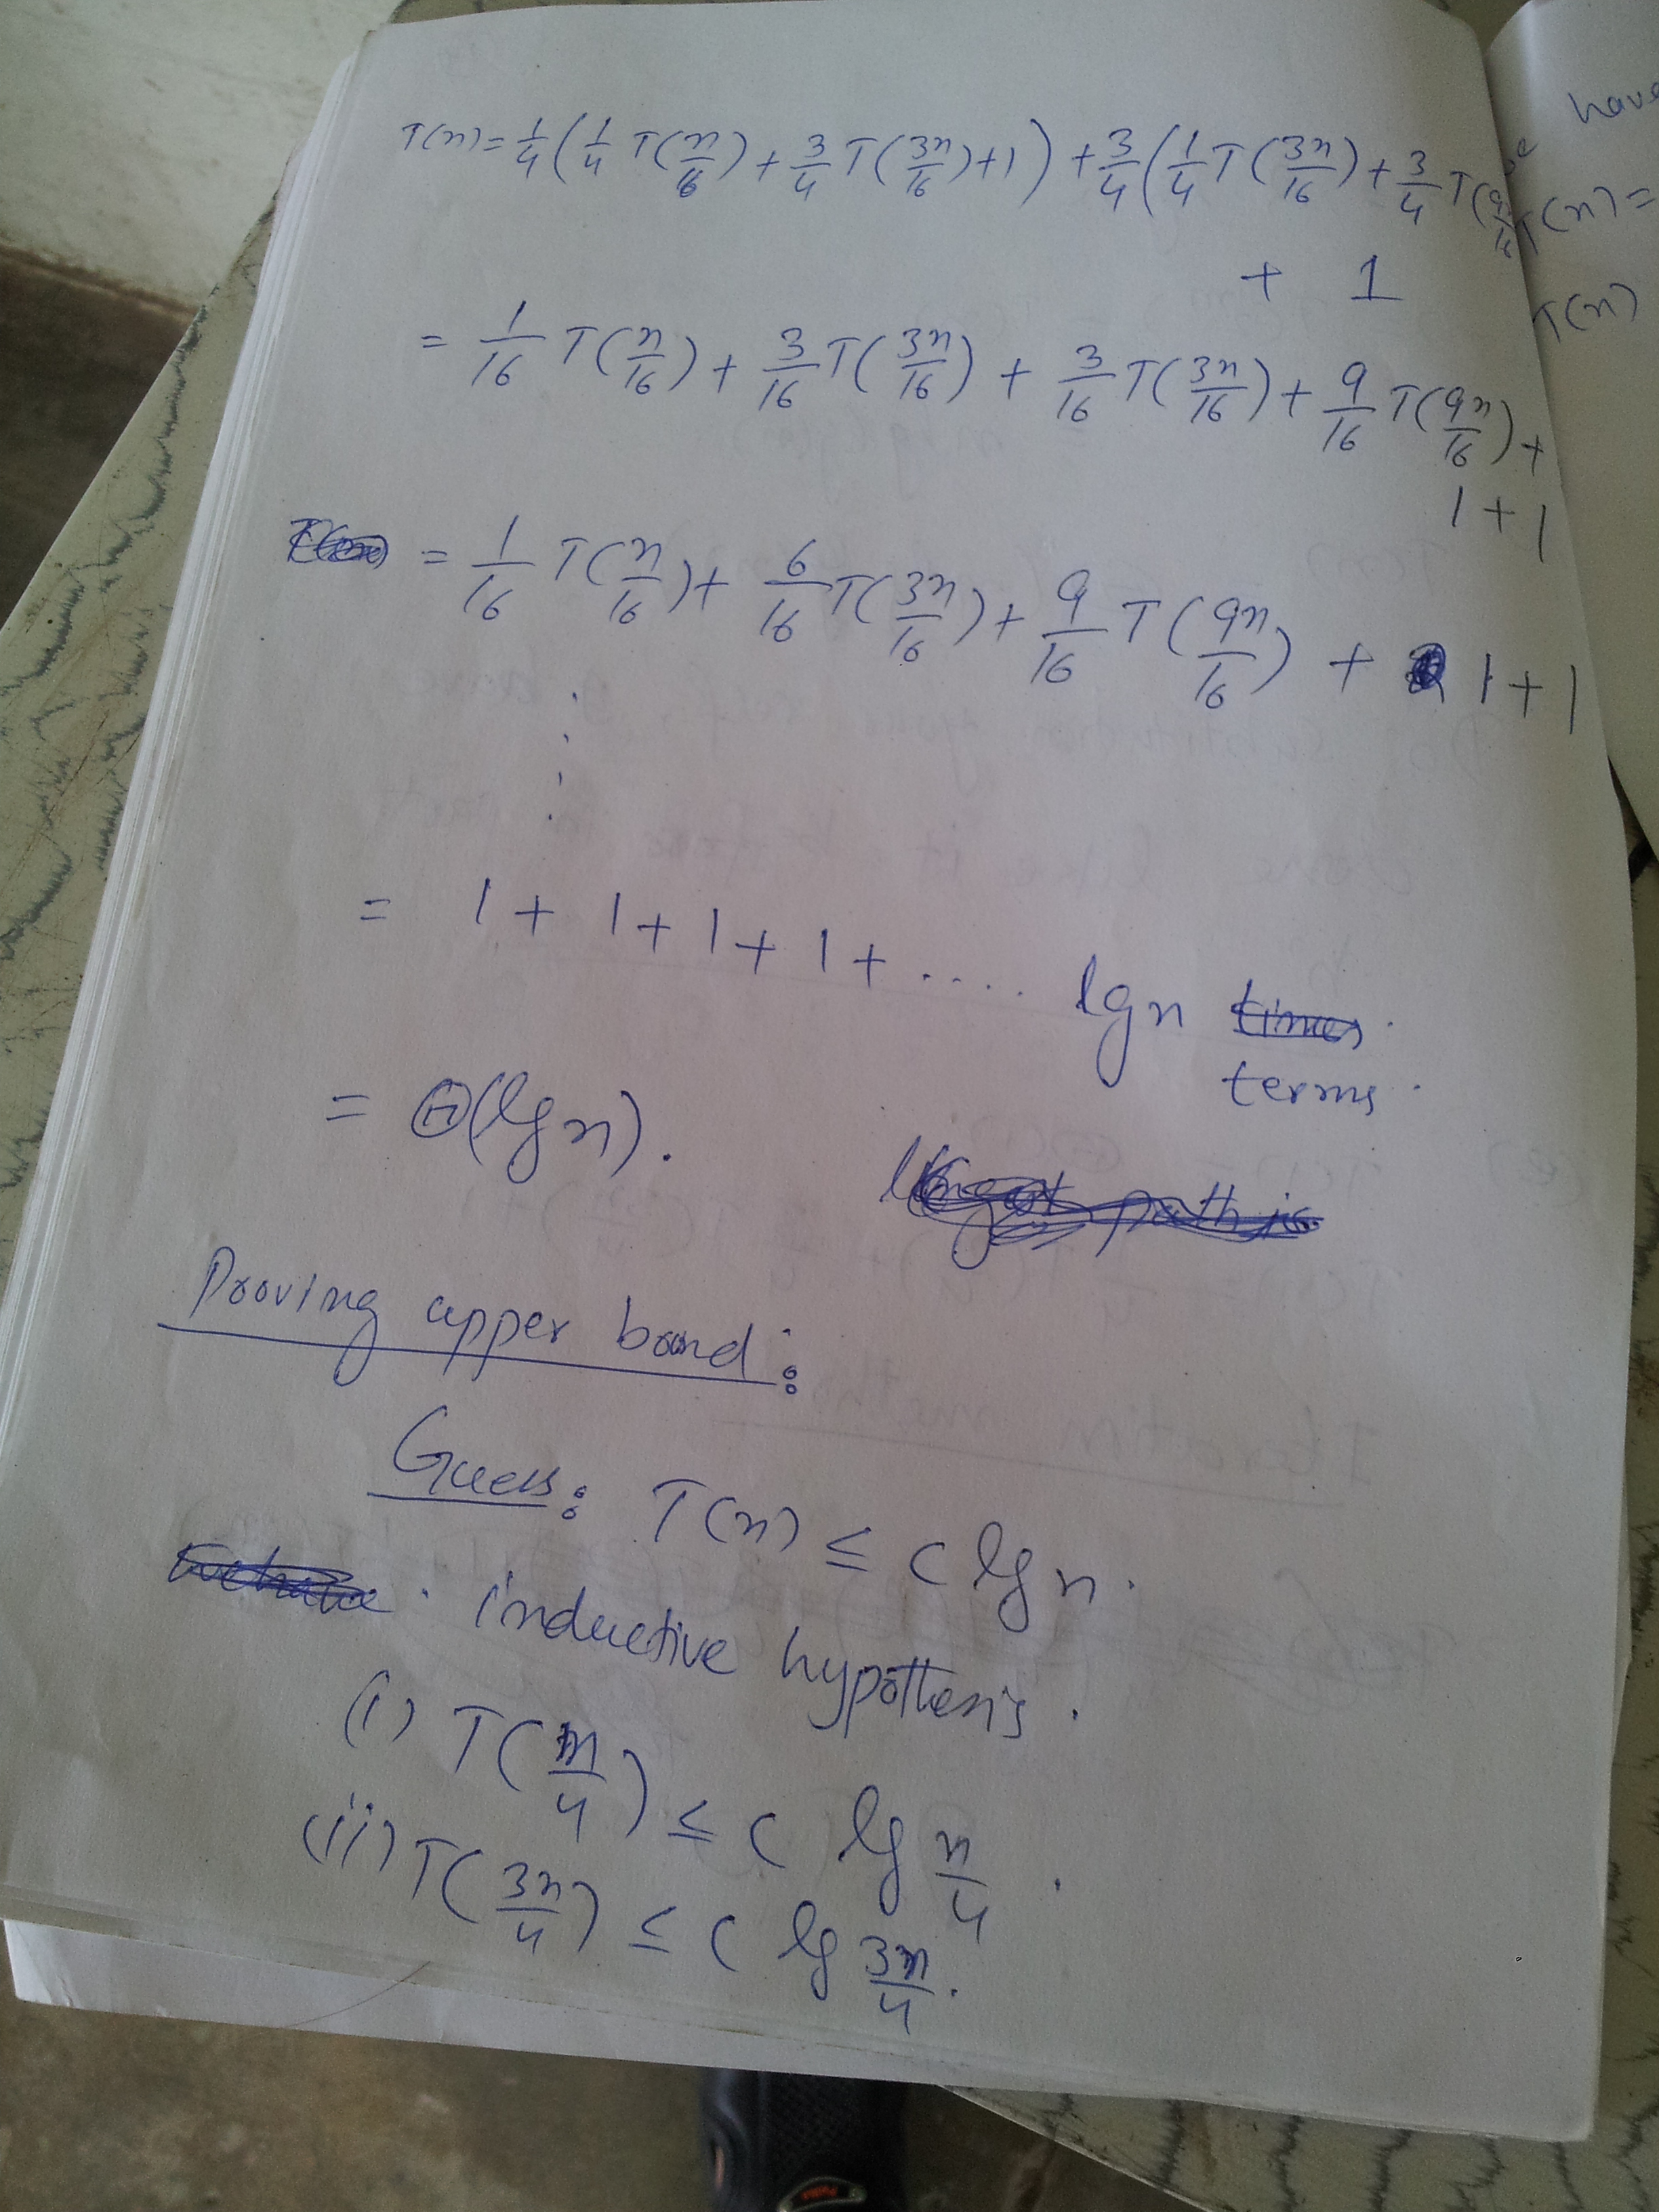 T(n) = 1/4 (1/4 T(n/16) + 3/4 T(3n/16) + 1) + 3/4 (1/4 T(3n/16) + 3/4 T(9n/16)
+ 1
= 1/16 T(n/16) + 3/16 T(3n/16) + 3/16 T(3n/16) + 9/16 T(9n/16) +
1 + 1
= 1/16 T(n/16) + 6/16 T(3n/16) + 9/16 T(9n/16) + 1 + 1
= 1 + 1 + 1 + 1 + .... lgn times.
terms.
= Θ(lg n).
Proving upper bond:
Guess: T(n) ≤ c lg n.
inductive hypothesis.
(i) T(n/4) ≤ c lg n/4.
(ii) T(3n/4) ≤ c lg 3n/4.
T(n) =
T(n)